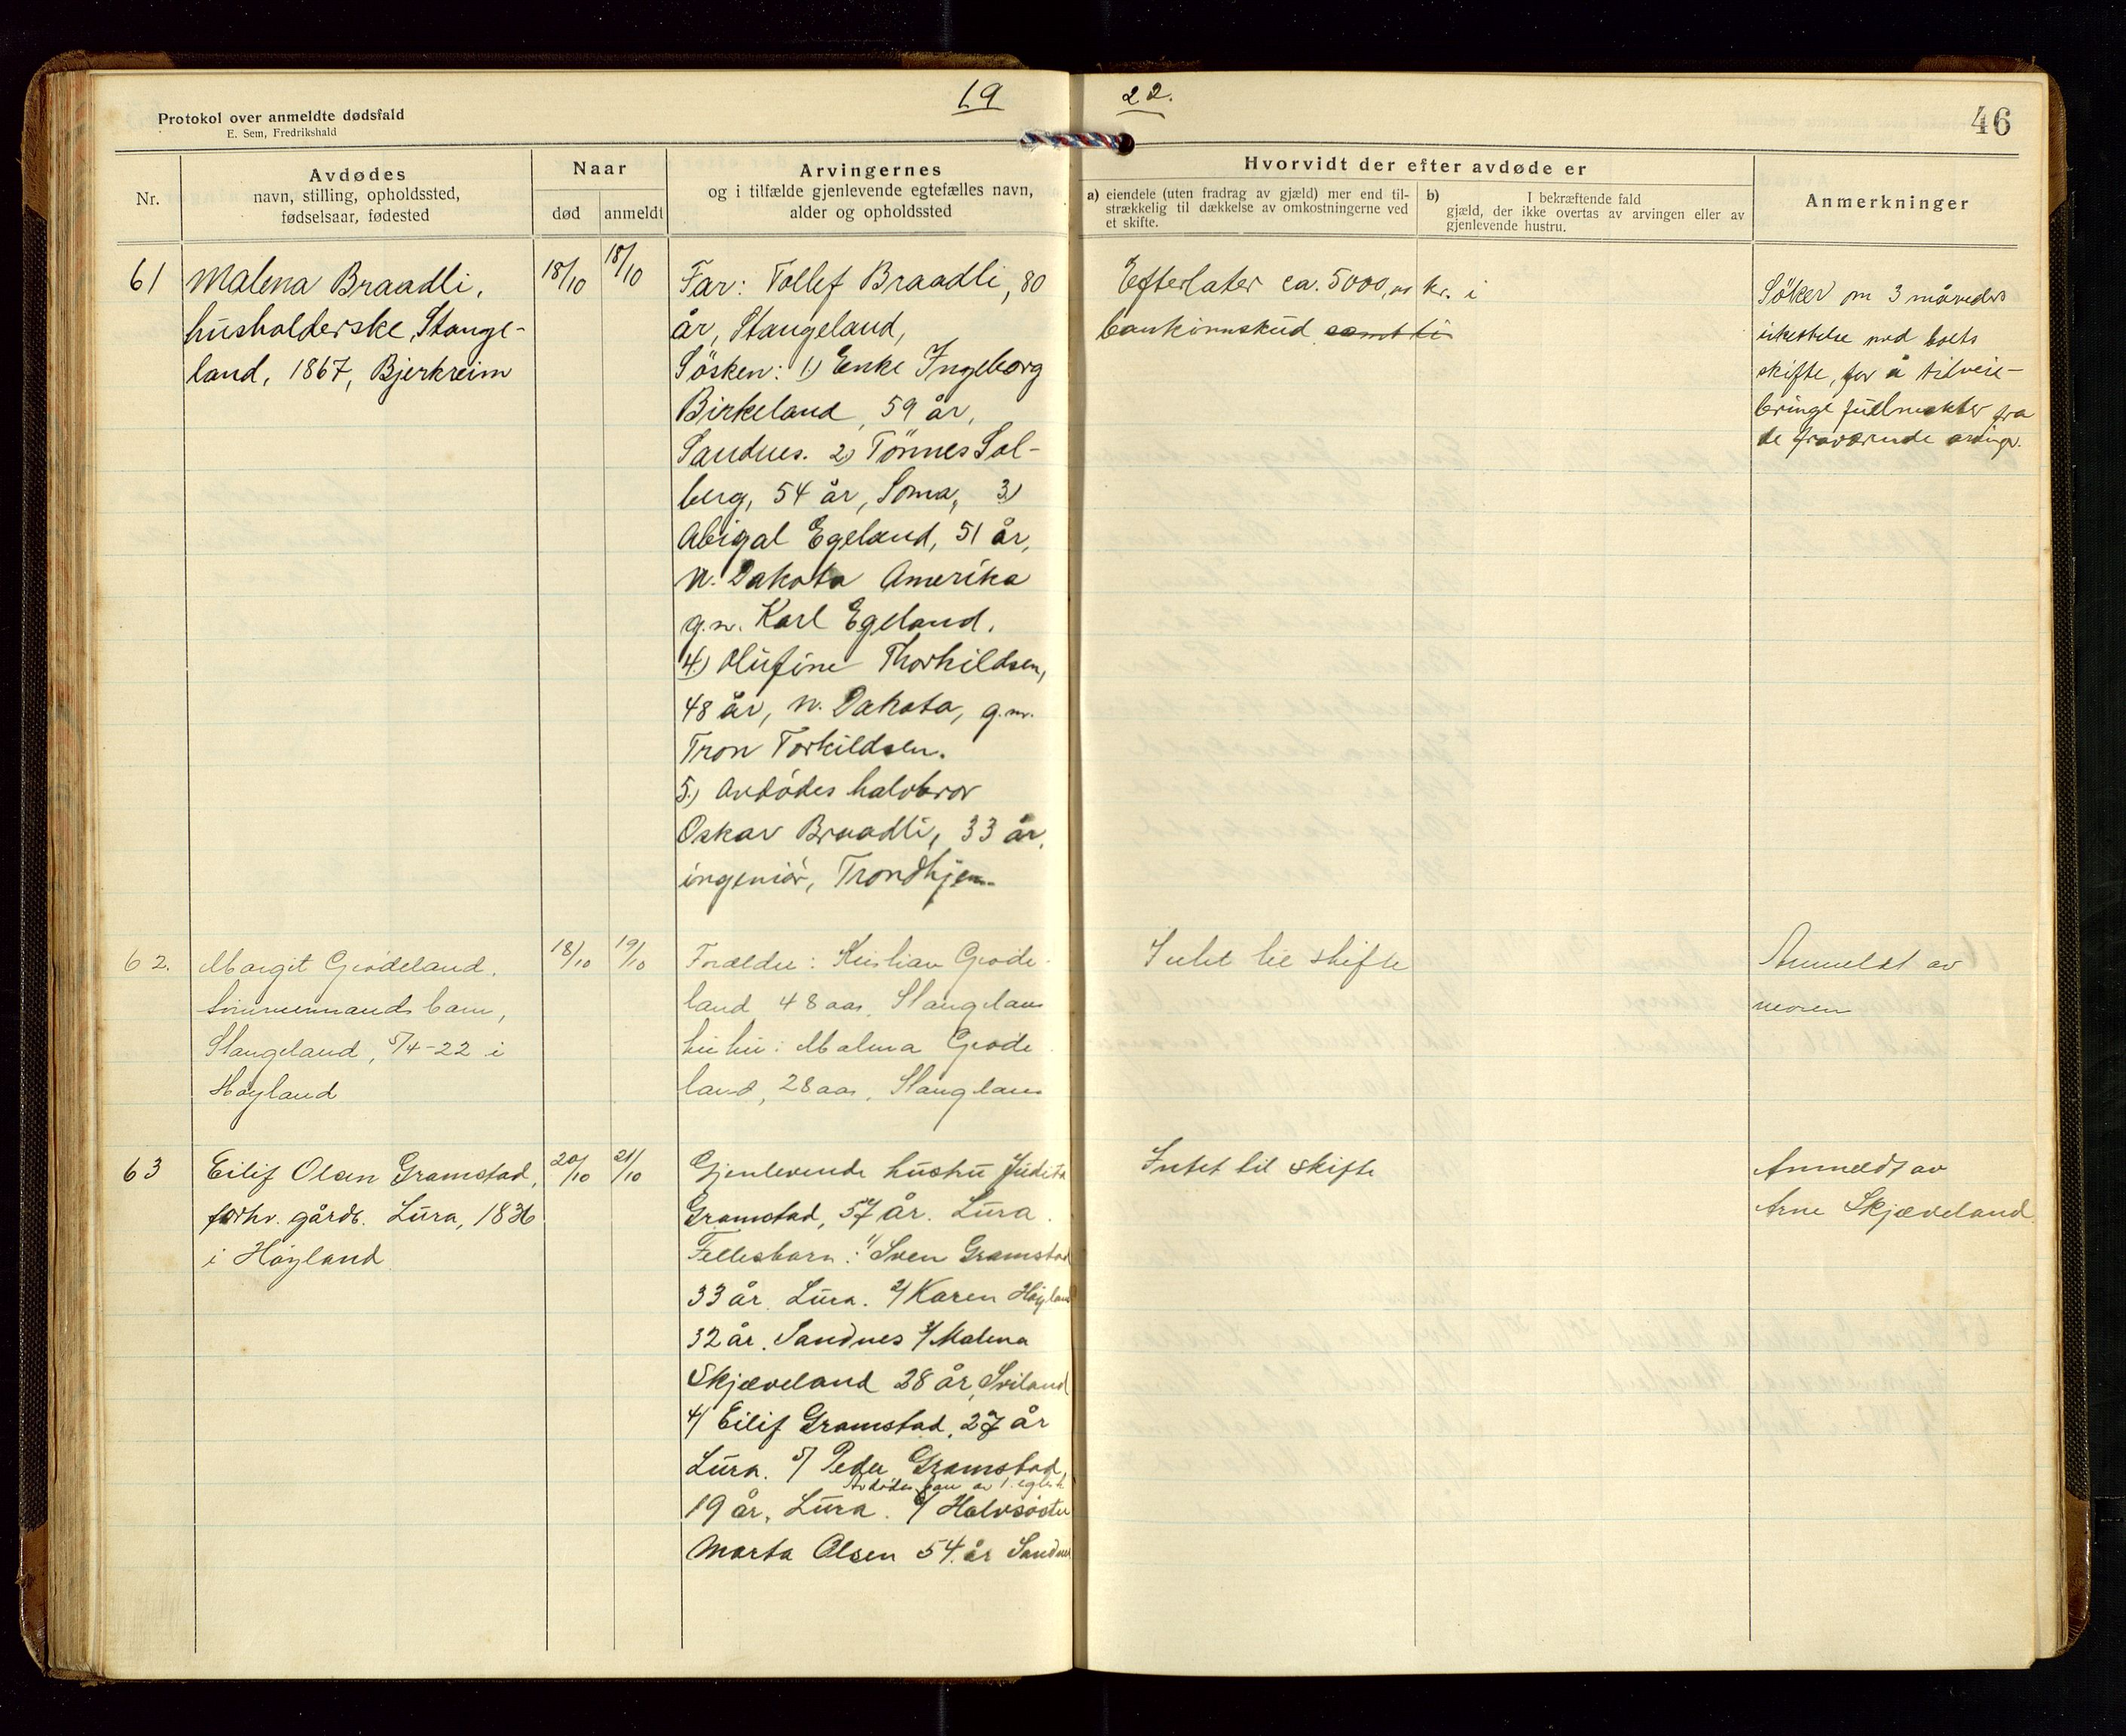 19
22.
46
Protokol over anmeldte dødsfald
E. Sem, Fredrikshald
Nr.
Avdødes
navn, stilling, opholdssted,
fødselsaar, fødested
Naar
død
anmeldt
Arvingernes
og i tilfælde gjenlevende egtefælles navn,
alder og opholdssted
Hvorvidt der efter avdøde er
a) eiendele (uten fradrag av gjæld) mer end til-
strækkelig til dækkelse av omkostningerne ved
et skifte.
b) I bekræftende fald
gjæld, der ikke overtas av arvingen eller av
gjenlevende hustru.
Anmerkninger
61
Malena Braadli,
husholderske, Stange-
land, 1867, Bjerkreim
18/10
18/10
Far: Tollef Braadli, 80
år, Stangeland,
Søsken: 1) Enke Ingeborg
Birkeland, 59 år,
Sandnes. 2) Tönnes Sol-
berg, 54 år, Soma, 3)
Abigal Egeland, 51 år,
N. Dakota Amerika
g.m. Karl Egeland.
4) Olufine Thorkildsen,
48 år, N. Dakota, g.m.
Tron Torkildsen.
5) Avdødes halvbror
Oskar Braadli, 33 år,
ingeniør, Trondhjem
Efterlater ca. 5000,00 kr. i
bankinnskud samt ti
Söker om 3 måneders
utsettelse med boets
skifte, for å tilveie-
bringe fullmakter fra
de fraværende arvinger.
62.
Margit Grødeland,
tømmermands barn,
Stangeland, 5/4-22 i
Høyland
18/10
19/10
Forældre: Kristian Grøde-
land 48 aar, Stangeland
hustru: Malena Grøde-
land, 28 aar, Stangeland
Intet til skifte
Anmeldt av
moren
63
Eilif Olsen Gramstad,
forhv. gårdb. Lura, 1836
i Høyland
20/10
21/10
Gjenlevende hustru Judita
Gramstad, 57 år. Lura.
Fellesbarn: 1/ Sven Gramstad
33 år. Lura. 2/ Karen Høyland
32 år. Sandnes 3/ Malena
Skjæveland 28 år, Sviland
4/ Eilif Gramstad, 27 år
Lura. 5/ Peder Gramstad,
Avdødes barn av 1. egtesk.
19 år, Lura. 6/ Halvsøster
Marta Olsen 54 år Sandnes
Intet til skifte
Anmeldt av
Arne Skjæveland.